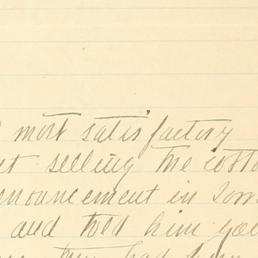 most satisfactory
selling the cotto
nouncement in
and told him you
had